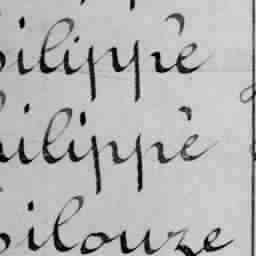 ilippe
hilippe
ilouze